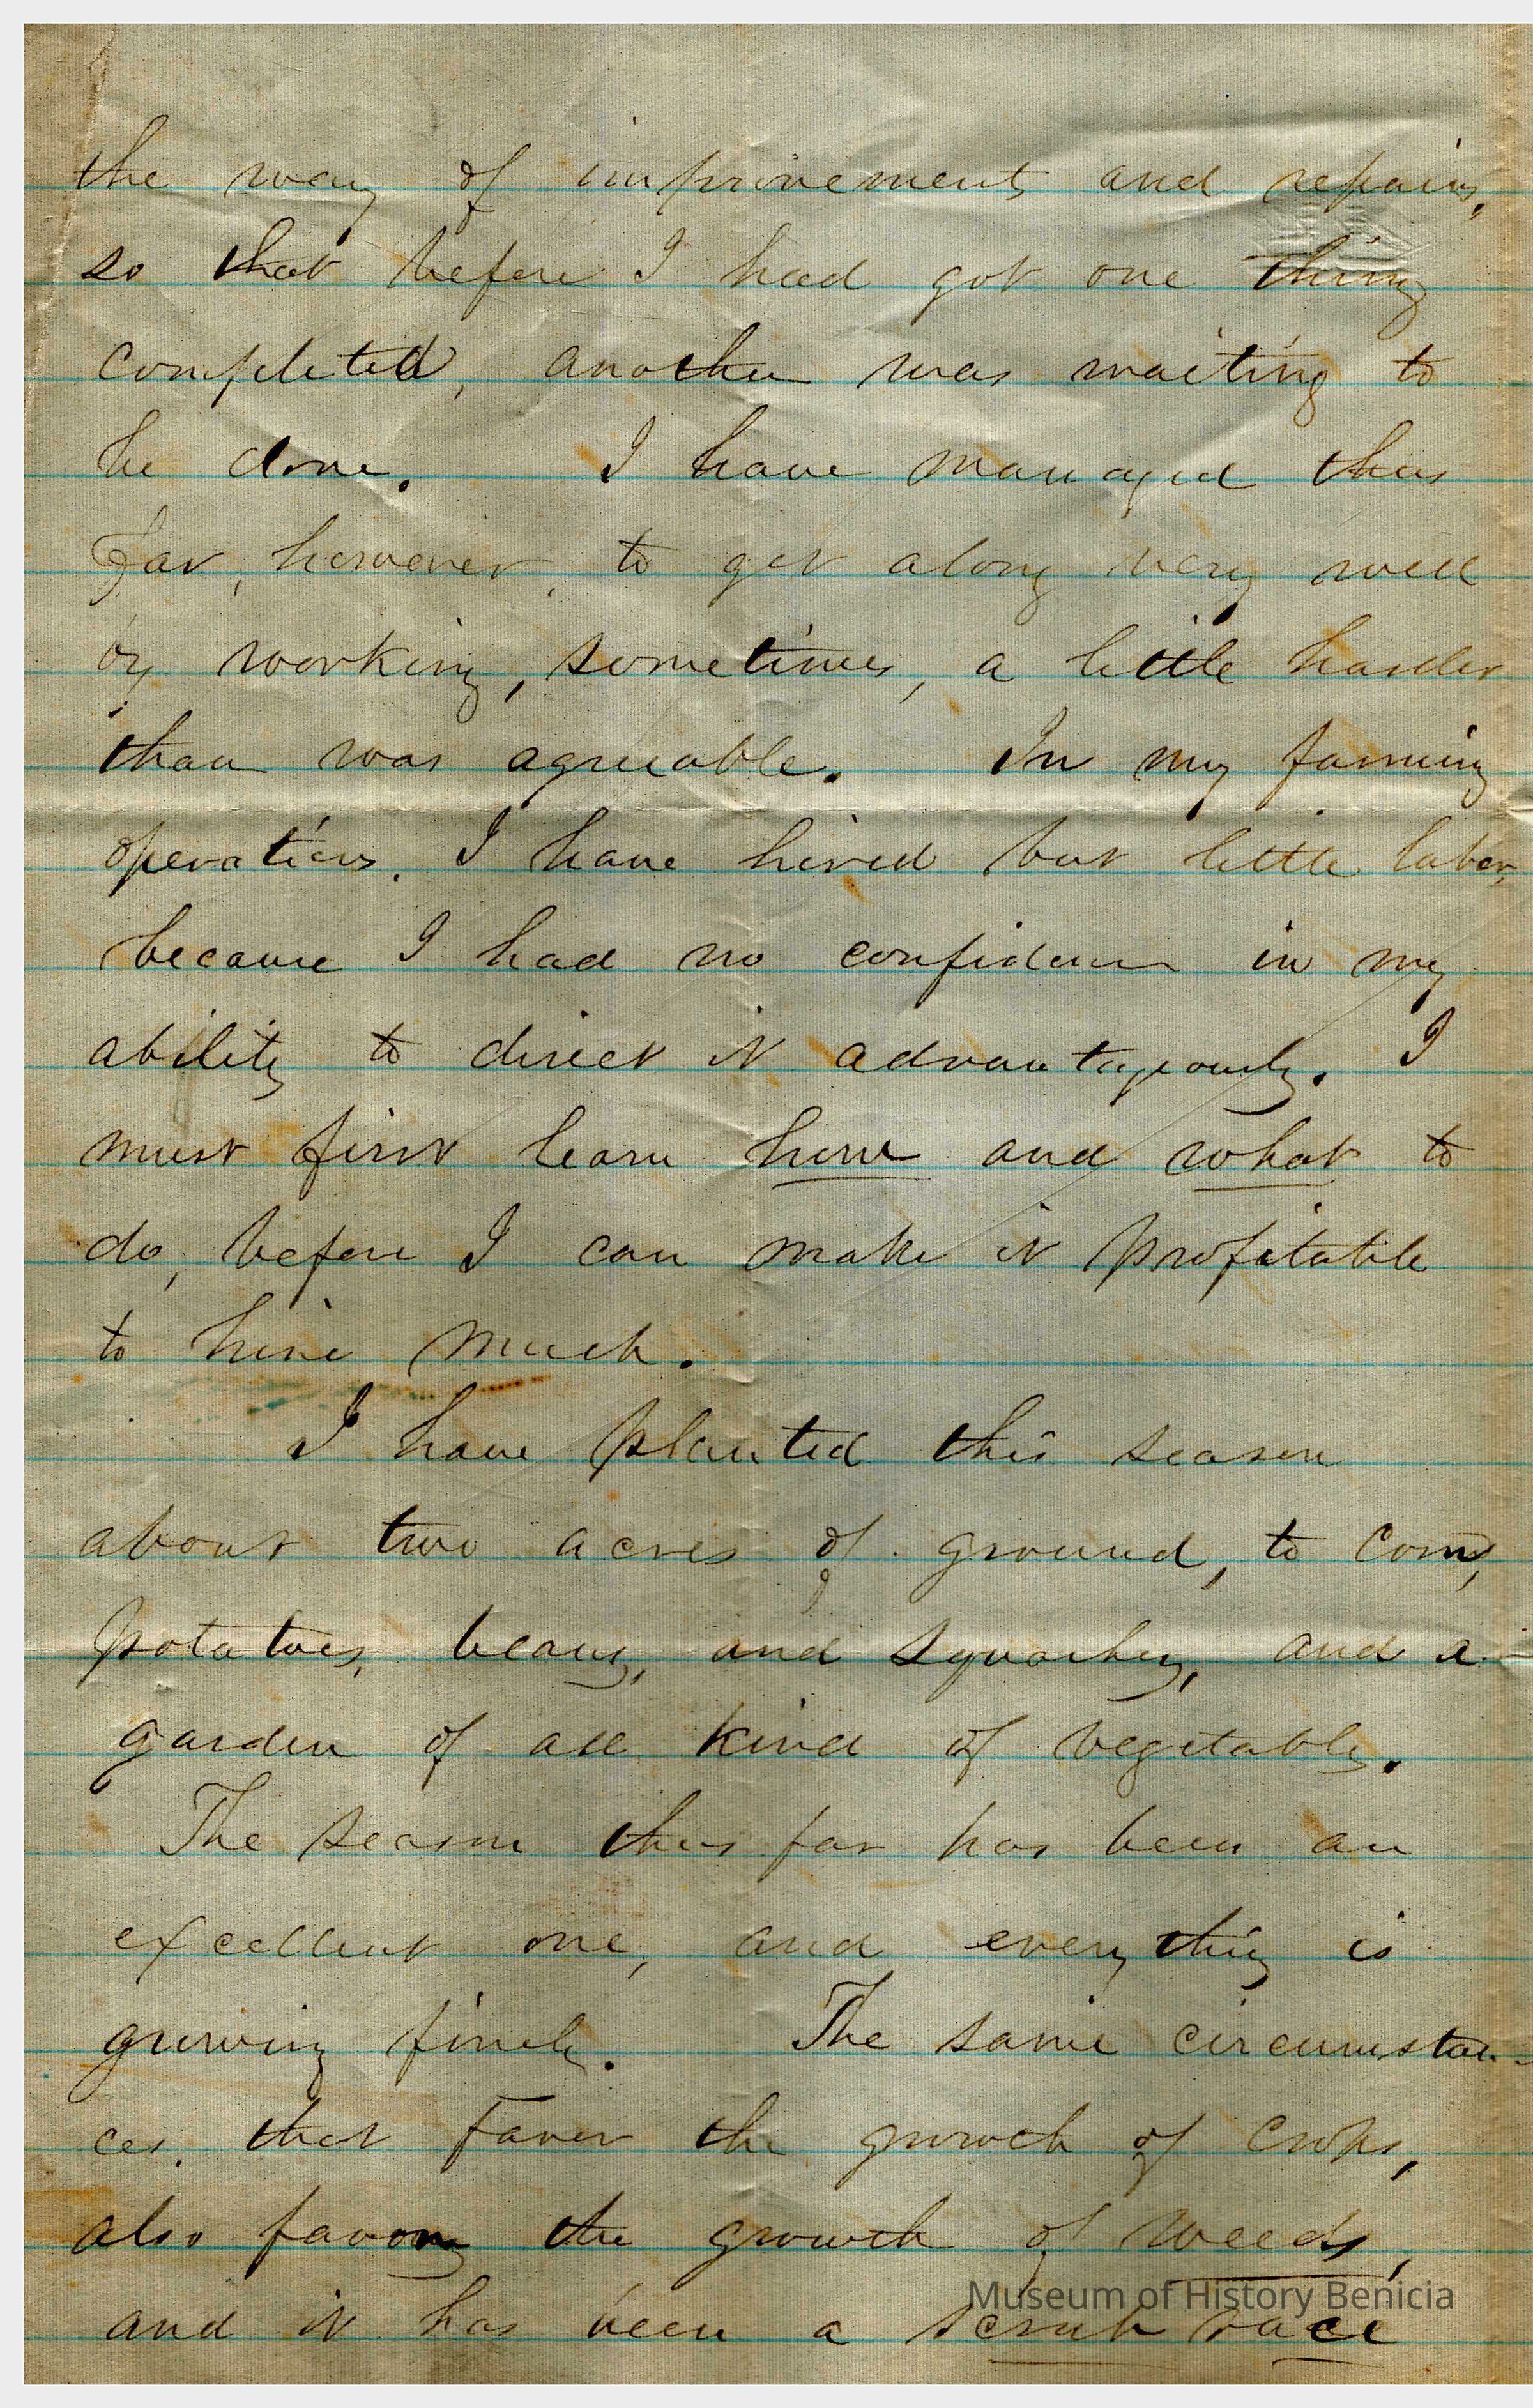 the way of improvements and repairs,
so that before I had got one thing
completed, another was waiting to
be done. I have managed thus
far, however, to get along very well
by working, sometimes, a little harder
than was agreeable. In my farming
operations, I have hired but little labor,
because I had no confidence in my
ability to direct it advantageously. I
must first learn how and what to
do, before I can make it profitable
to hire much.
I have planted this season
about two acres of ground, to corn,
potatoes, beans, and squashes, and a
garden of all kind of vegetables.
The season thus far has been an
excellent one, and everything is
growing finely. The same circumstan-
ces, that favor the growth of crops,
also favors the growth of weeds,
and it has been a scrub race
Museum of History Benicia